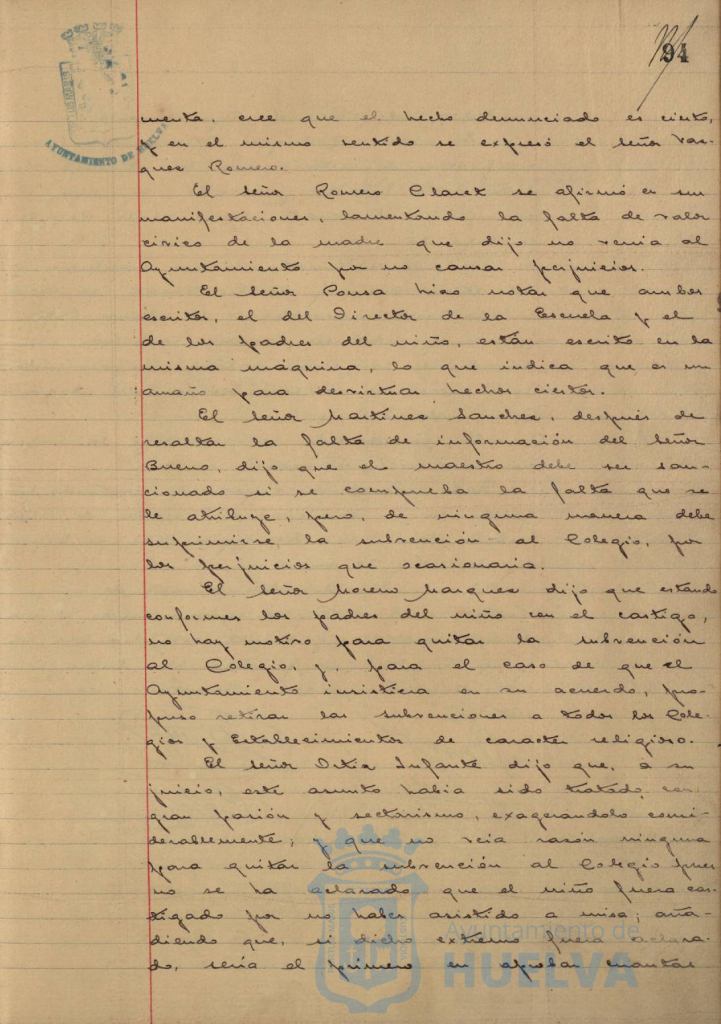 94
AYUNTAMIENTO DE HUELVA
menta, cree que el hecho denunciado es cierto,
y en el mismo sentido se expresó el señor Vaz-
quez Romero.
El señor Romero Claret se afirmó en sus
manifestaciones, lamentando la falta de valor
civico de la madre que dijo no venia al
Ayuntamiento por no causar perjuicios.
El señor Ponsa hizo notar que ambos
escritos, el del Director de la Escuela y el
de los padres del niño, están escrito en la
misma máquina, lo que indica que es un
amaño para desvirtuar hechos ciertos.
El señor Martinez Sanchez, después de
resaltar la falta de información del señor
Bueno, dijo que el maestro debe ser san-
cionado si se comprueba la falta que se
le atribuye, pero, de ninguna manera debe
suprimirse la subvención al Colegio, por
los perjuicios que ocasionaria.
El señor Moreno Marquez dijo que estando
conformes los padres del niño con el castigo,
no hay motivo para quitar la subvención
al Colegio, y, para el caso de que el
Ayuntamiento insistiera en su acuerdo, pro-
puso retirar las subvenciones a todos los Cole-
gios y Establecimientos de caracter religioso.
El señor Ortiz Infante dijo que, a su
juicio, este asunto habia sido tratado con
gran pasión y sectarismo, exagerandolo consi-
derablemente; y que no veia razón ninguna
para quitar la subvención al Colegio pues
no se ha aclarado que el niño fuera cas-
tigado por no haber asistido a misa; aña-
diendo que, si dicho extremo fuera aclara-
do, seria el primero en aprobar cuantas
Ayuntamiento de
HUELVA